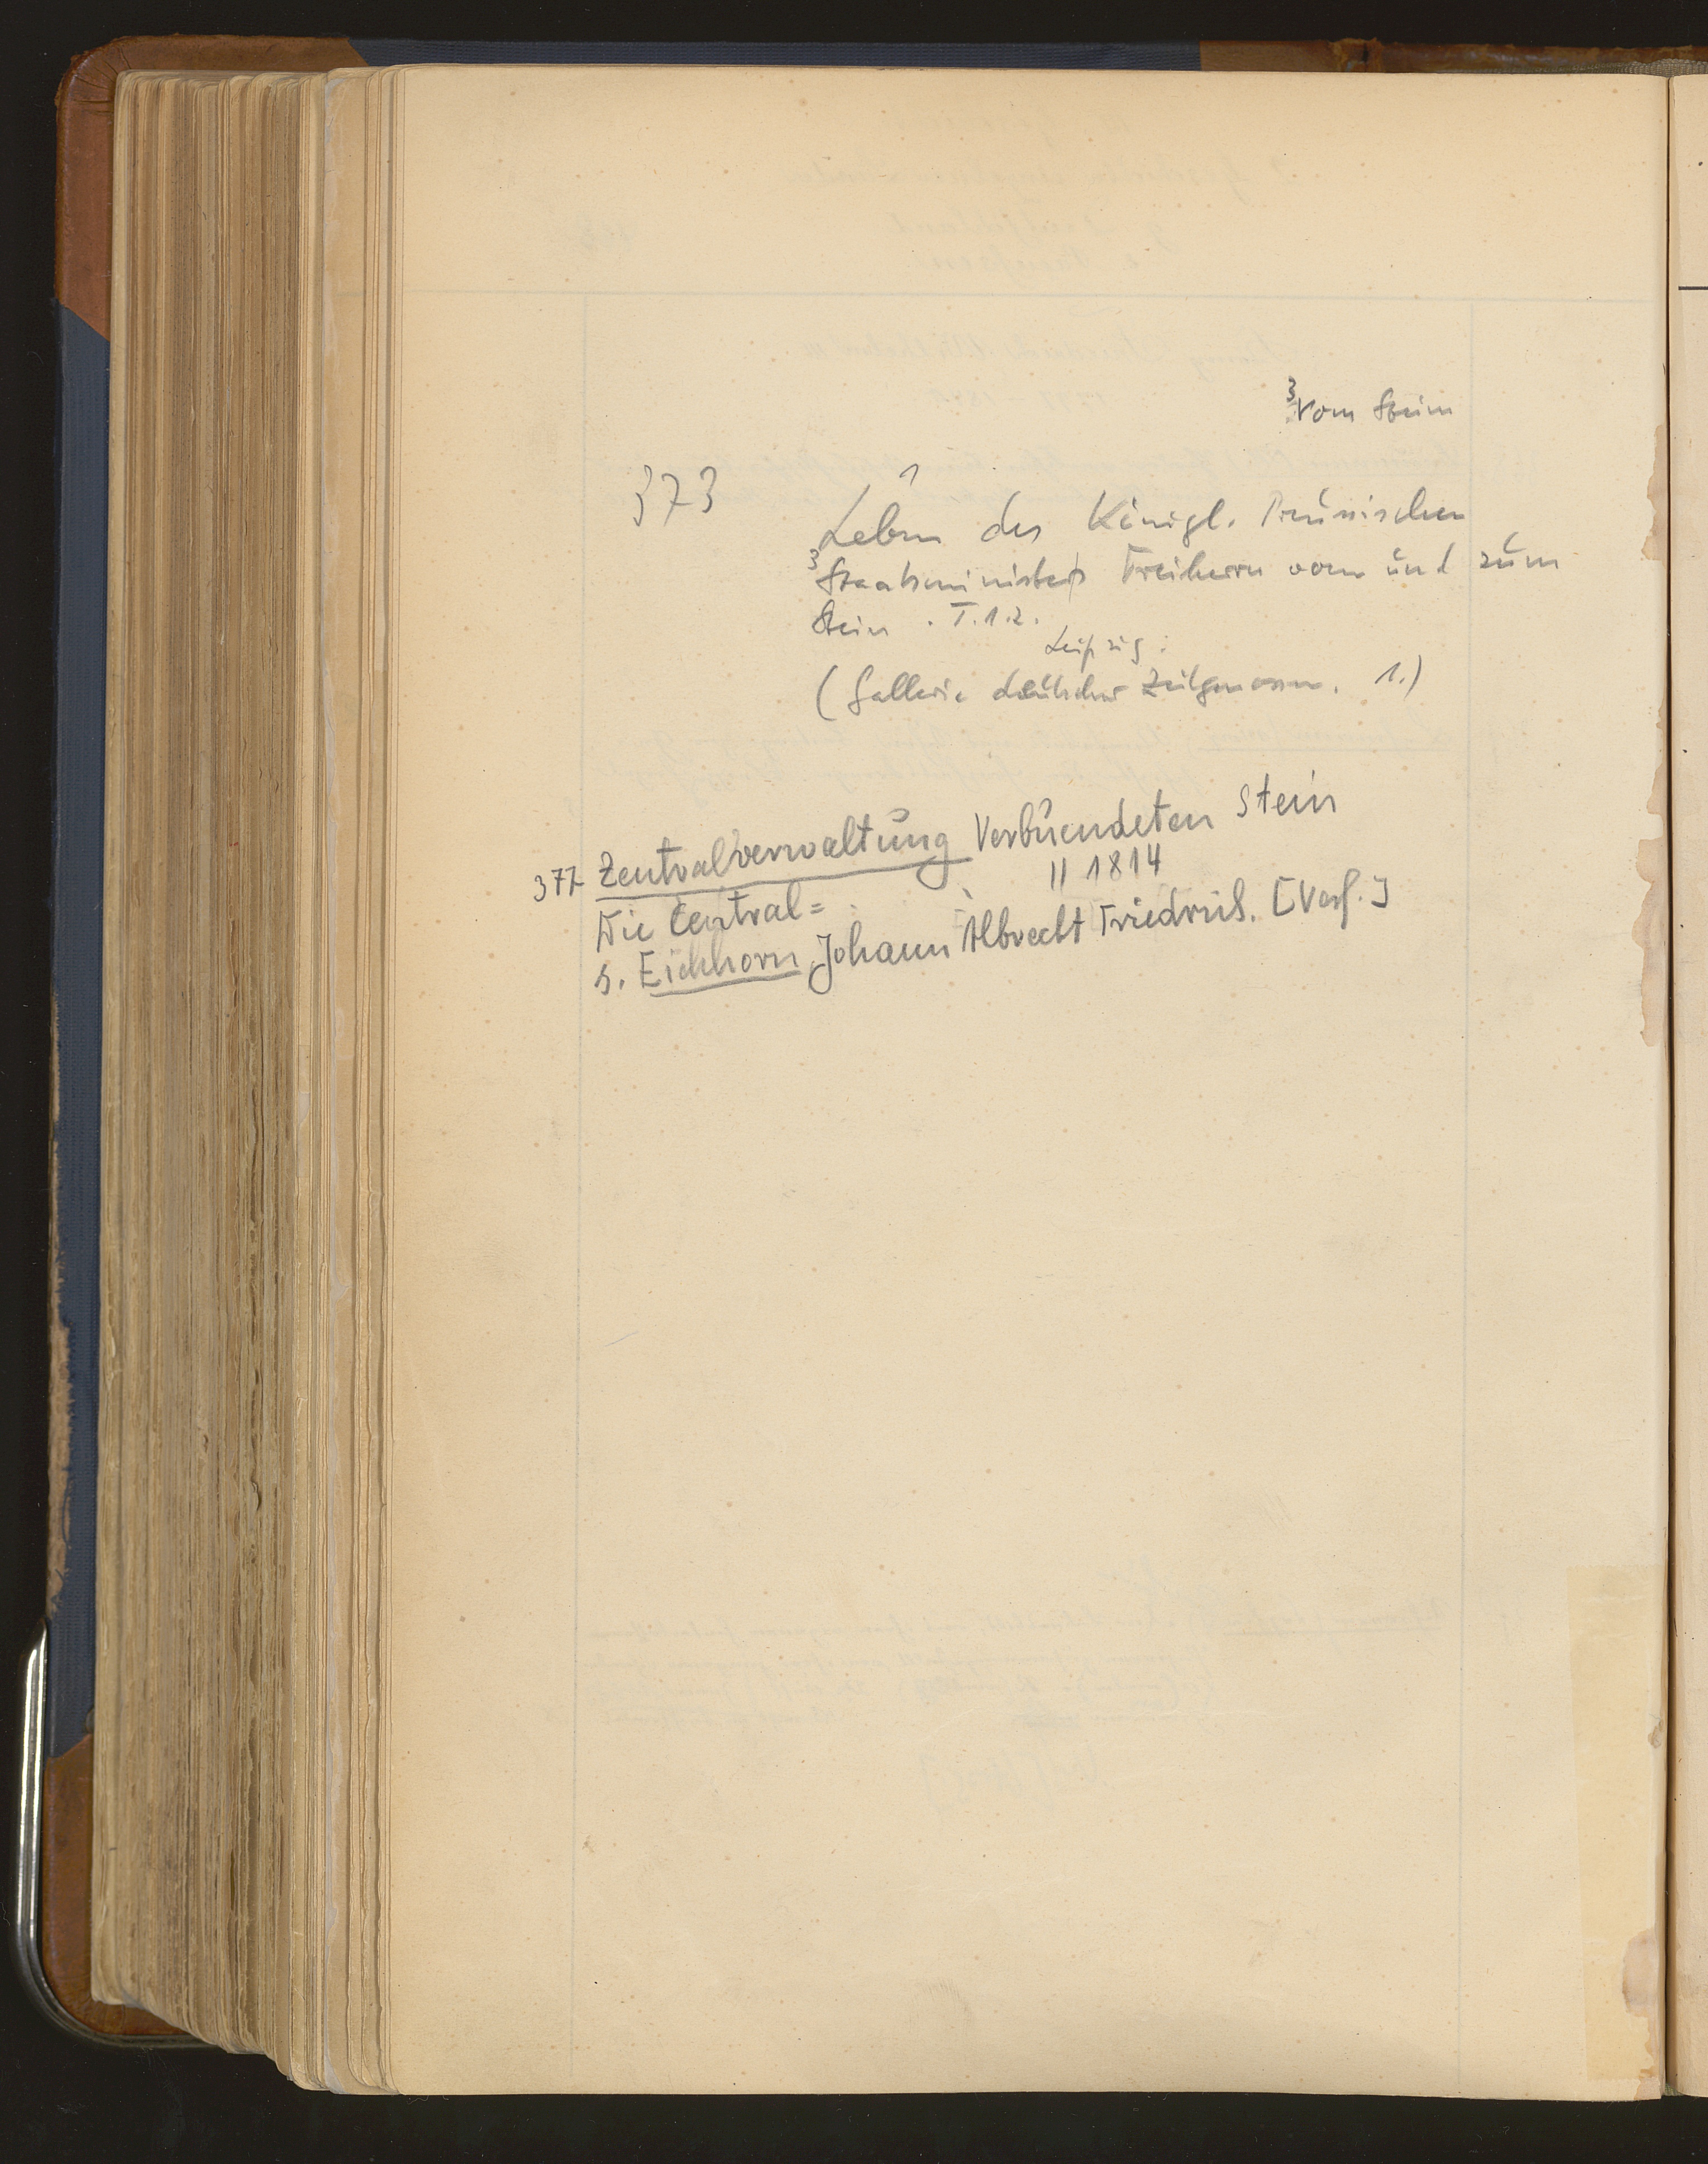 ³vom Stein
373 1
Leben des Königl. Preussischen
³Staatsministers Freiherrn vom und zum
Stein . T. 1. 2.
Leipzig :
(Gallerie deutscher Zeitgenossen. 1.)
377 Zentralverwaltung Verbuendeten Stein
Die Central= " 1814
s. Eichhorn, Johann Albrecht Friedrich. [Verf.]